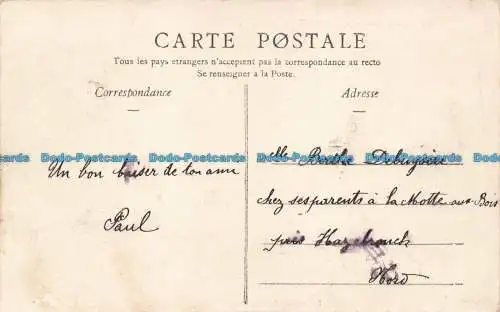 CARTE PØSTALE
Tous les pays étrangers n'acceptent pas la correspondance au recto
Se renseigner à la Poste.
Correspondance
Adresse
Dodo-Postcards Dodo-Postcards Dodo-Postcards Dodo-Postcards
Un bon baiser de ton ami
Paul
Mlle Berthe
chez ses parents à la Motte aux Bois
près Hazebrouck
Nord